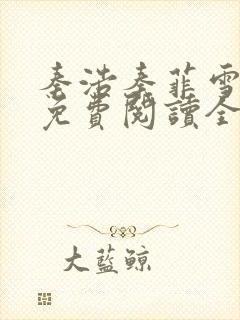 秦浩秦菲雪
免費閱讀全
大藍鯨